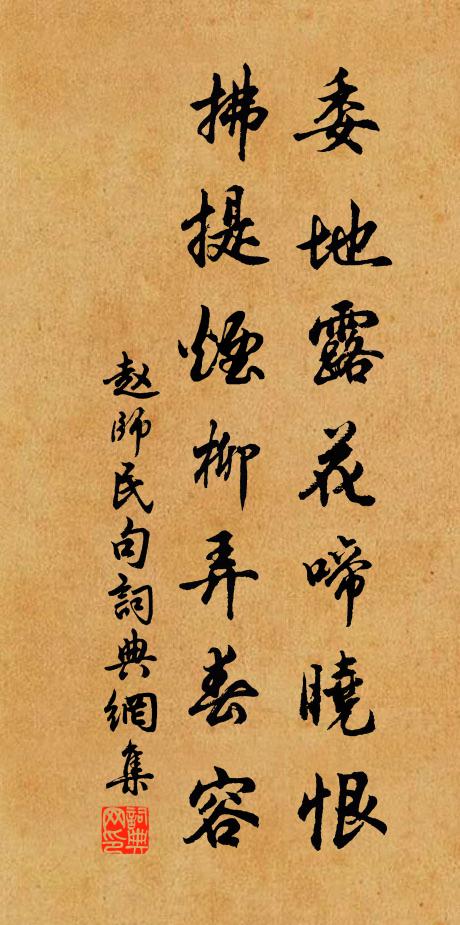 委地露花啼曉恨
拂提煙柳弄春容
赵師民句詞典網集
詞典网印